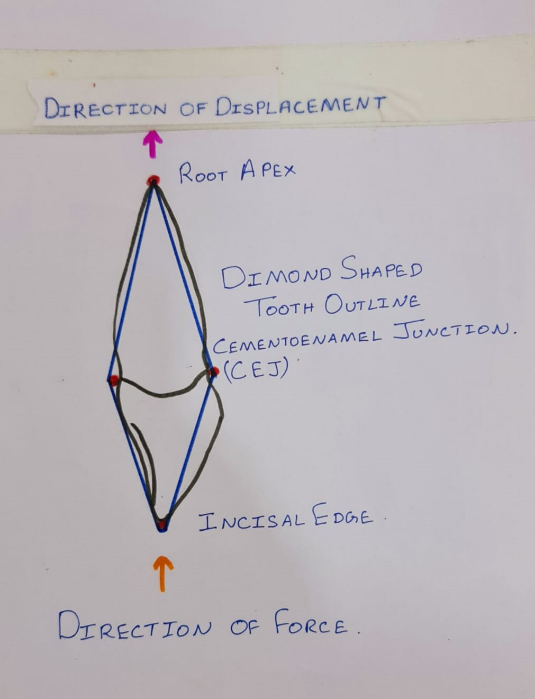 DIRECTION OF DISPLACEMENT
ROOT APEX
DIMOND SHAPED
TOOTH OUTLINE
CEMENTOENAMEL JUNCTION.
(CEJ)
INCISAL EDGE
DIRECTION OF FORCE.